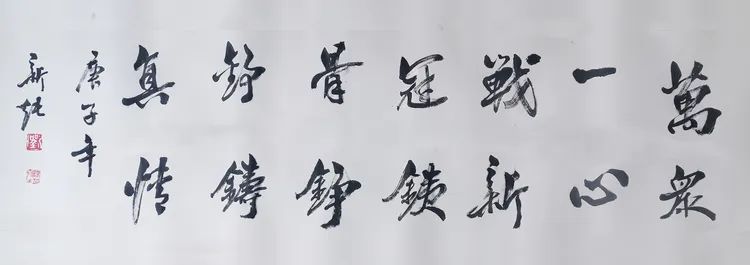 萬衆
一心
戰新
冠銕
骨錚
錚鑄
真情
庚子年
新